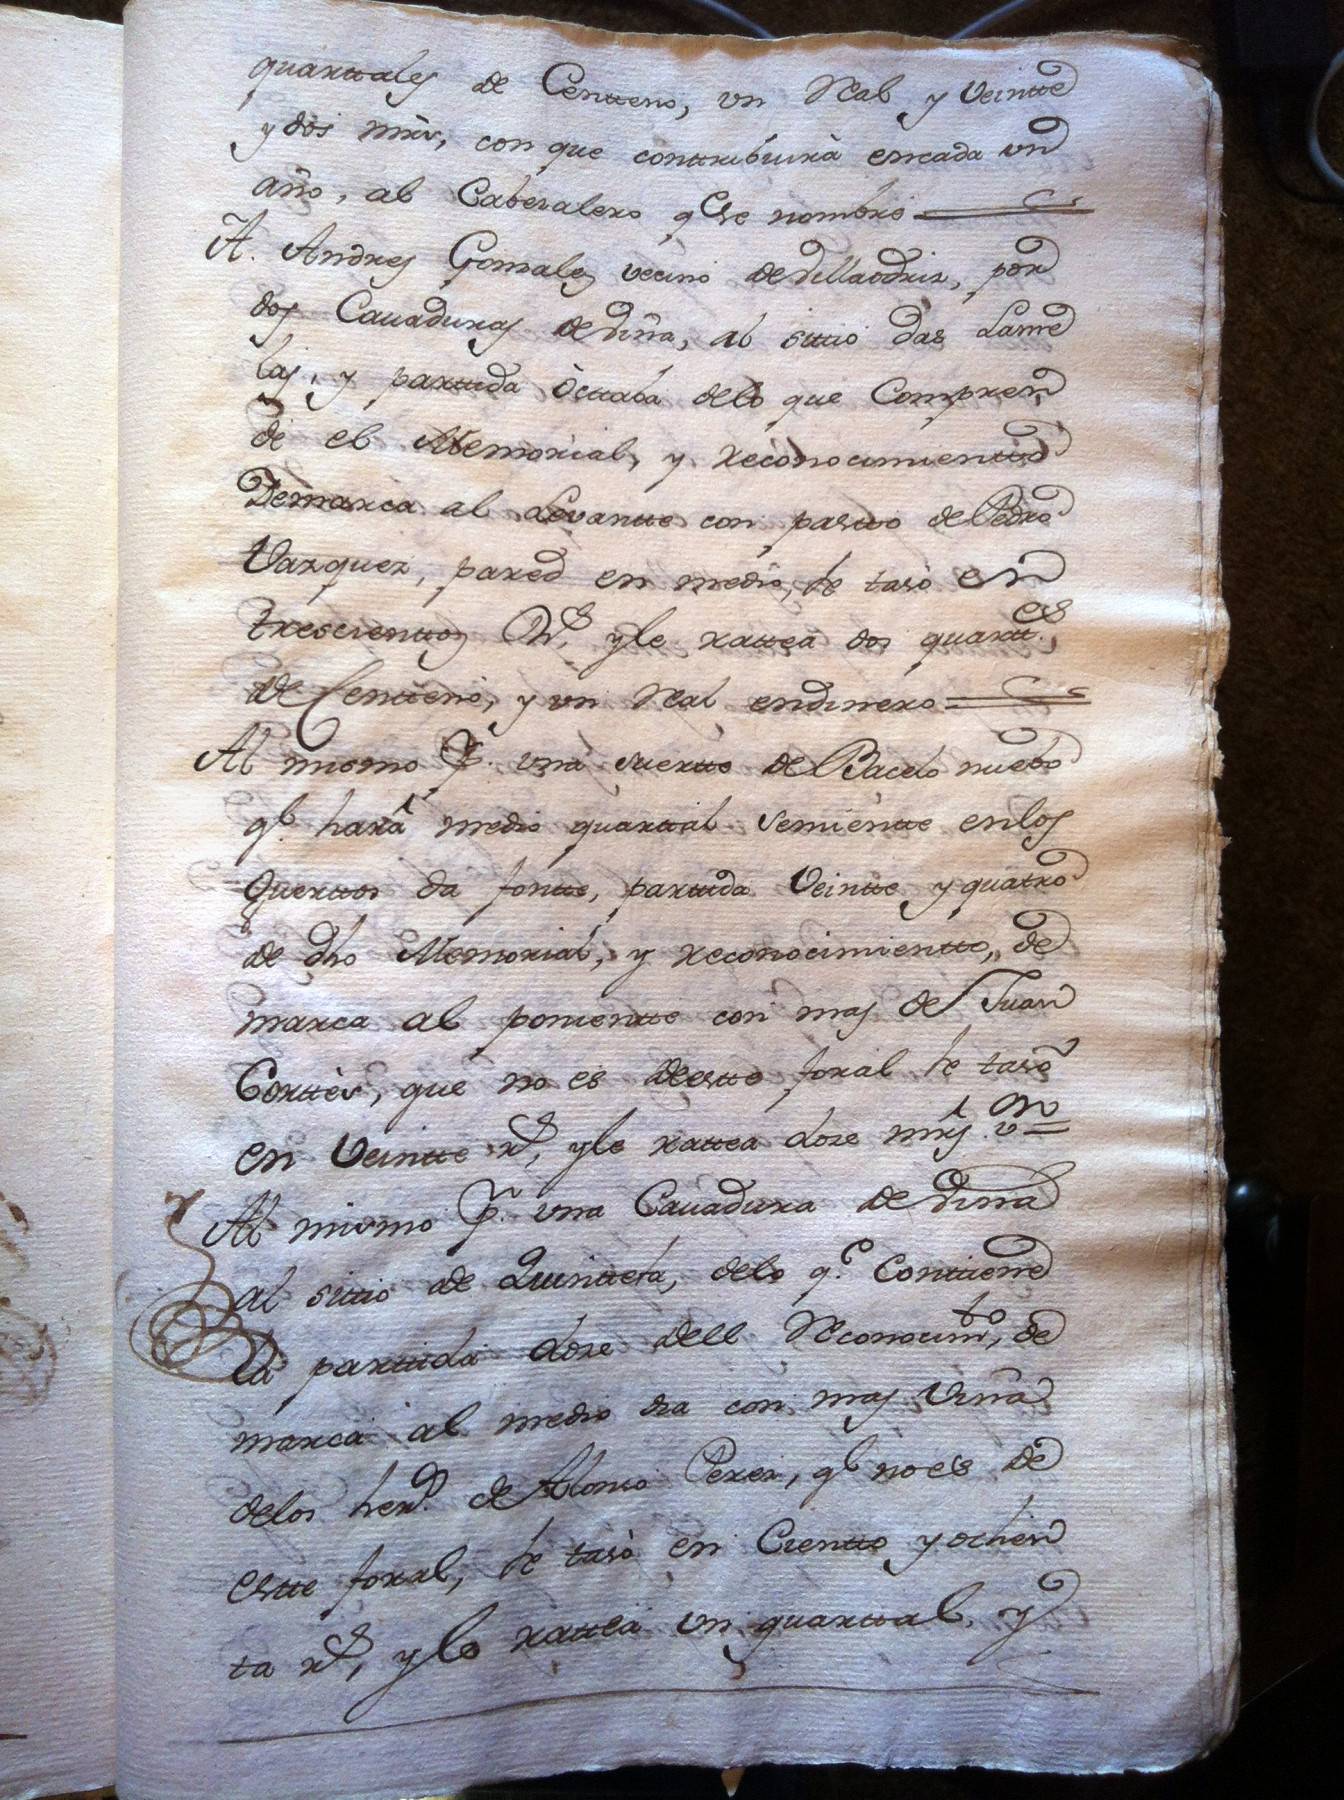 quarttales de Centteno, un Real y Veintte
y dos mrs, con que conttribuirà encada un
año, al Cabezalero q.e se nombre
A. Andres Gonzales vecino de Villaodriz, por
dos Cauaduras de Viña, al sittio das Lame
las, y parttida octtaba delo que Compren
de el Memorial, y reconocimientto
Demarca al Levantte con pastto de Pedro
Vazquez, pared en medio, se tasò en
trescienttos R.s, y le rattea dos quartt.es
de Centteno, y un Real endinero
Al mismo P.r una suertte de Bacelo nuebo
q.e harà medio quarttal semientte enlos
Querttos da fontte, parttida Veintte y quatro
de dho Memorial, y reconocimientto, de
marca al ponientte con mas de Juan
Corttès, que no es de estte foral se tasò
en Veintte r.s, y le rattea doze mrs. vn
Al mismo P.r una Cauadura de Viña
al sittio de Quintteta, delo q.e Conttiene
la parttida doze dell Reconocim.to, de
marca al medio dia con mas Viña
delos her.os de Alonso Perez, q.e no es de
estte foral, se tasò en Cientto y ochen
ta r.s, y le rattea un quarttal, y